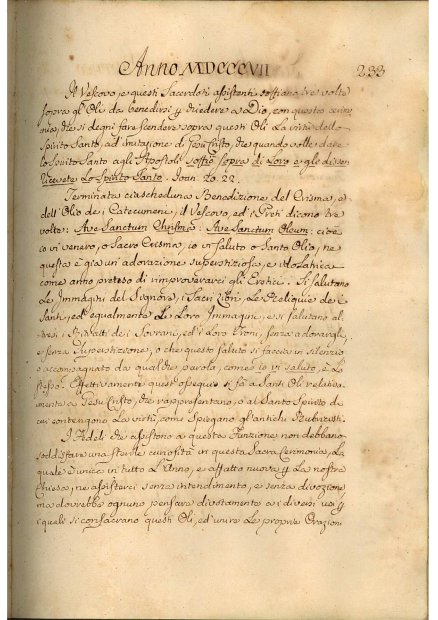 Anno MDCCCVII 233
Il Vescovo, e questi Sacerdoti assistenti soffiano tre volte
sopra gl'Oli da benedirsi p chiedere a Dio, con questa cerimo
nia, che si degni fare scendere sopra questi Oli la virtù dello
Spirito Santo, ad imitazione di Gesù Cristo, che quando volle dare
lo Spirito Santo agli Apostoli soffiò sopra di Loro e gle disse
ricevete Lo Spirito Santo. Joan. 20. 22.
Terminata ciascheduna Benedizione del Crisma, e
dell'Olio de i Catecumeni, il Vescovo, ed i Preti dicono tre
volte: Ave Sanctum Chrisma: Ave Sanctum Oleum: cioè
io vi venero, o Sacro Crisma, io vi saluto o Santo Olio, ne
questa è gia un'adorazione superstiziosa, e idolatrica
come anno preteso di rimproverarci gli Eretici. Si salutano
Le Immagini del Signore, i Sacrifizi, Le Reliquie de i
Santi, ed egualmente Le Loro Immagini, e si salutano al
tresi i Ritratti de i Sovrani, ed i Loro Troni, senza adorargli,
e senza superstizione, o che questo saluto si faccia in silenzio
o accompagnato da qualche parola, come io vi saluto, è lo
stesso. Effettivamente questi ossequi si fà a Santi Oli relativa
mente a Gesu Cristo, che rappresentano, o al Santo Spirito di
cui contengono La virtù, come spiegano gl'antichi Rubricisti.
I Fedeli che assistono a questa Funzione, non debbano
soddisfare una sterile curiosità in questa Sacra Ceremonia, La
quale è unica in tutto L'Anno, e affatto nuova p La nostra
Chiesa, ne assisterci senza intendimento, e senza divozione
ma dovrebbe ognuno pensare divotamente a i diversi usi p
i quali si consacrano questi Oli, ed unire Le proprie Orazioni